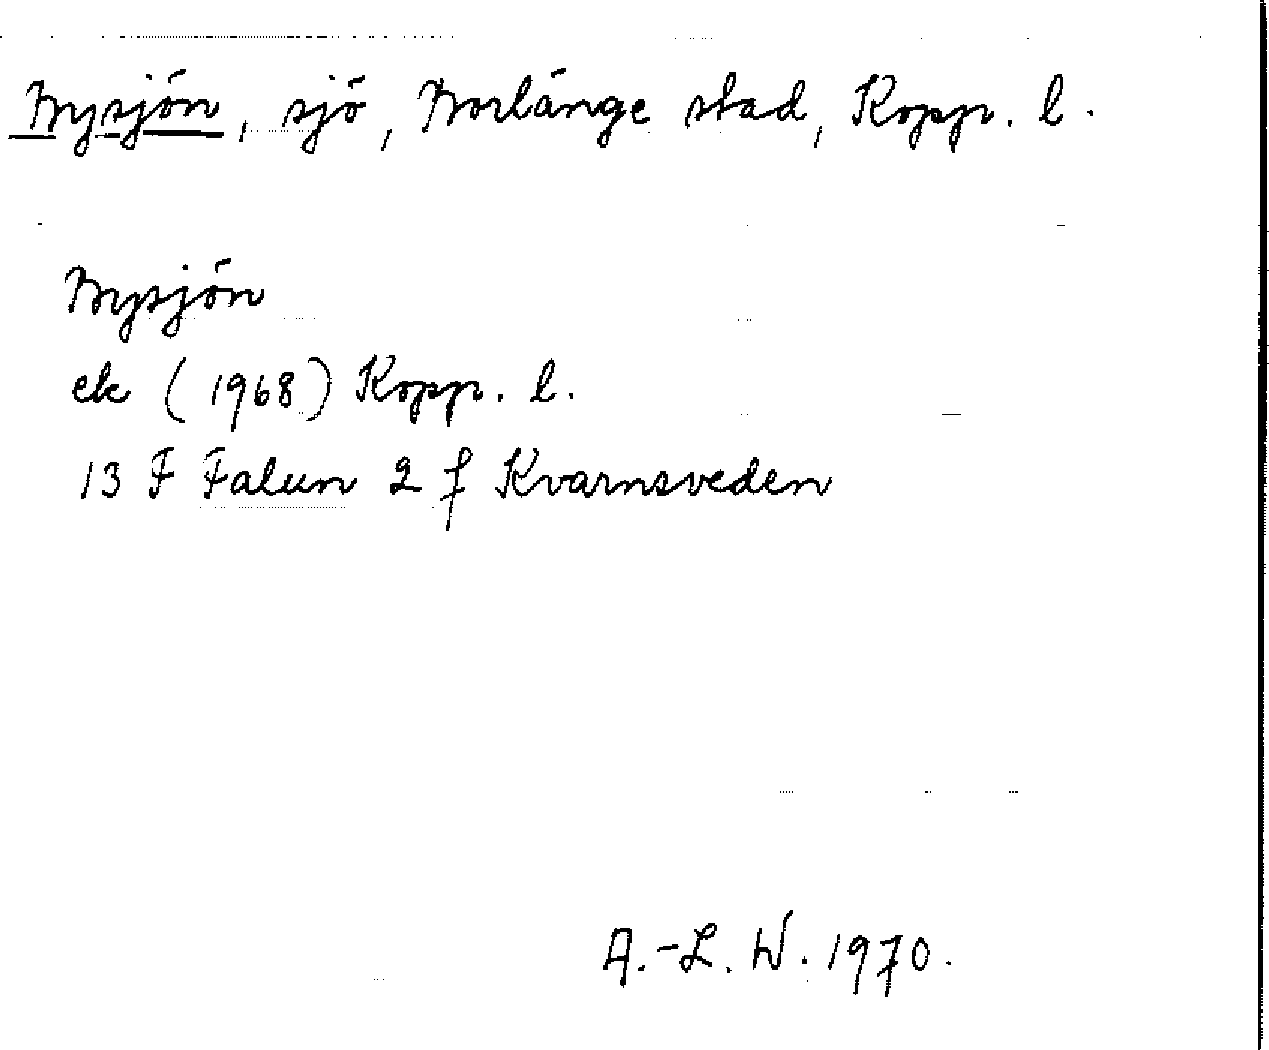 Bysjön, sjö, Borlänge stad, Kopp. l.
Bysjön
ek (1968) Kopp. l.
13 F Falun 2 f Kvarnsveden
A.-L. W. 1970.